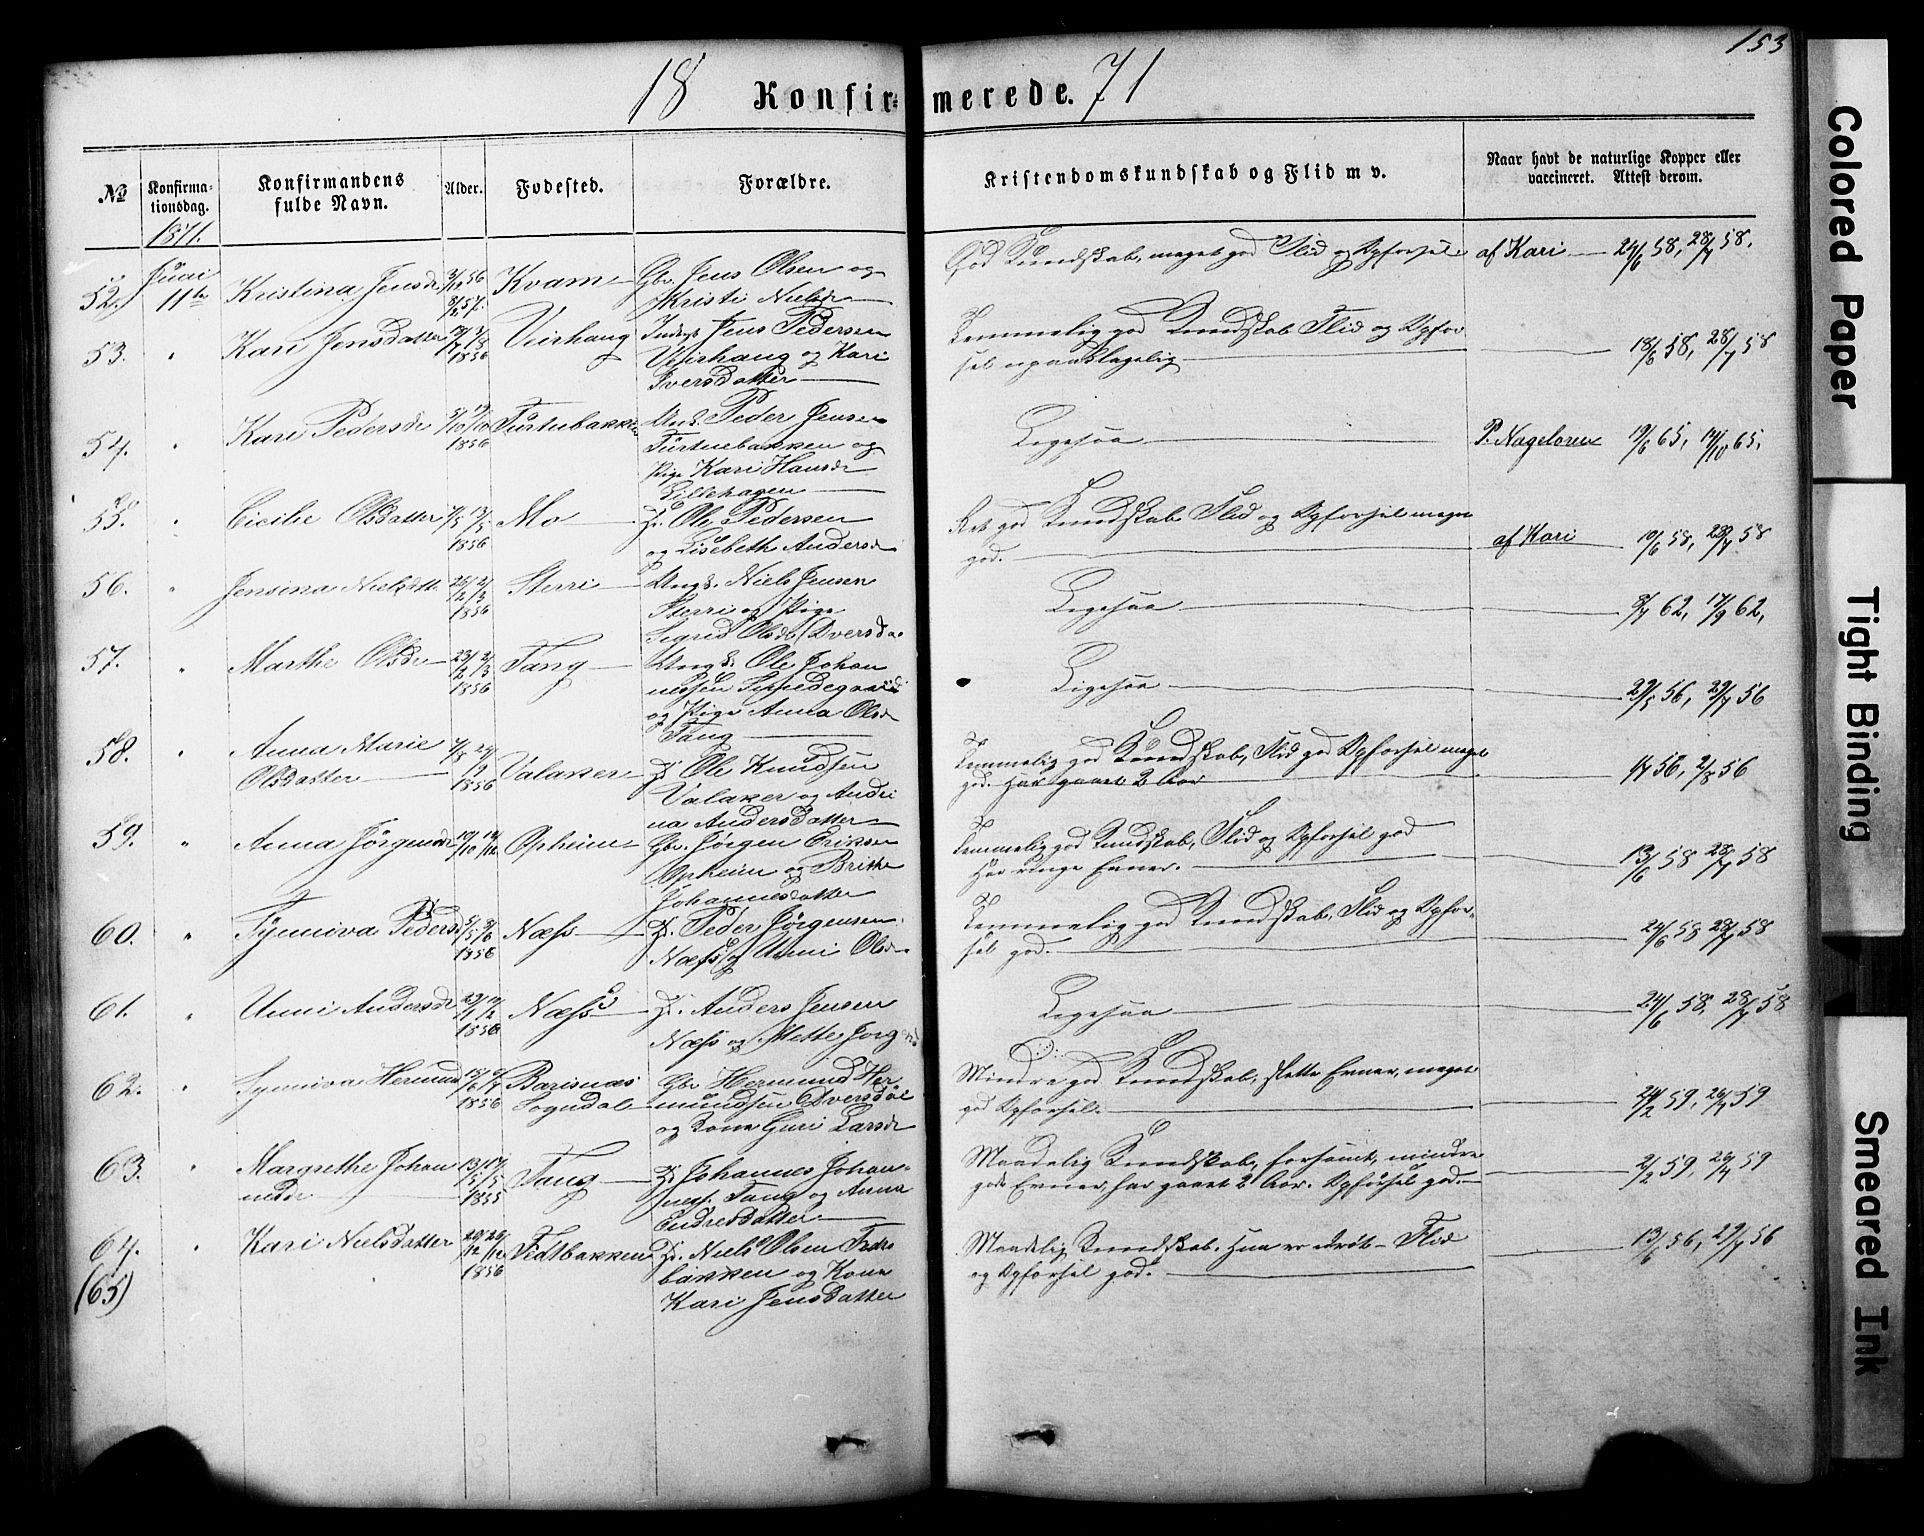 153
18 Konfir= merede. 71
No
Konfirma-
tionsdag.
Konfirmandens
fulde Navn.
Alder.
Fødested.
Forældre.
Kristendomskundskab og Flid m v.
Naar havt de naturlige Kopper eller
vaccineret. Attest derom.
1871.
Juni
52. 11te Kristina Jensdr Kvam Gbr. Jens Olsen og
Kristi Nielsdr
God Kundskab, meget god Flid og Opførsel af Kari 24/6 58, 28/7 58.
53. " Kari Jensdatter 1856 Veirhaug Inderst Jens Pedersen
Veirhaug og Kari
Iversdatter
Temmelig god Kundskab Flid og Opfør
sel upaaklagelig 18/6 58, 28/7 58
54. " Kari Pedersdr 1856 Türtnebakken Ungk. Peder Jensen
Türtnebakken og
Pige Kari Hansdr
Lillehagen
Ligesaa P. Nageloren 19/6 65, 14/10 65,
55. " Cicilie Olsdatter 1856 Mo Ole Pedersen
og Lisebeth Andersdr
Ret god Kundskab Flid og Opførsel meget
god. af Kari 10/6 58, 28/7 58
56. " Jensina Nielsdtt. 1856 Sterri Ungk. Niels Jensen
Sterri og Pige
Sigrid Olsdr
Ligesaa 8/7 62, 17/9 62,
57. " Marthe Olsdr 23/2 2/3 1856 Fang Ungk. Ole Johan
nessen
og Pige Anna Olsdr
Fang
Ligesaa 29/5 56, 29/7 56
58. " Anna Marie
Olsdatter 1856 Valaker Ole Knudsen
Valaker og Andri
na Andersdatter
Temmelig god Kundskab, Flid god Opførsel meget
god. Har gaaet 2 Aar 56, 2/8 56
59. " Anna Jørgensdr 19/10 14/12 Opheim Gbr. Jørgen Eriksen
Opheim og Brithe
Johannesdatter
Temmelig god Kundskab, Flid og Opførsel god
Har ringe Evner. 13/6 58 28/7 58
60. " Synneva Pedersd 1856 Næss Peder Jørgensen
Næss og Unni Olsdr
Temmelig god Kundskab, Flid og Opfør-
sel god. 24/6 58 28/7 58
61. " Unni Andersdr 1856 Næss Anders Jensen
Næss og Mette Jørg
Ligesaa 24/6 58, 28/7 58
62. " Synneva Hermund 1856 Barsnæs
Sogndal Gbr Hermund Her
mundsen Dversdal
og Kone Guri Larsdr
Mindre god Kundskab, slette Evner, meget
god Opførsel. 24/2 59, 26/4 59
63. " Margrethe Johan
nesdr 13/5 17/5 1855 Fang Johannes Johan-
nesss. Fang og Anna
Endresdatter
Maadelig Kundskab, forsømt, mindre
gode Evner, har gaaet 2 Aar. Opførsel god. 2/2 59, 26/4 59
64. " Kari Nielsdatter 1856 Fidtbakken Niels Olsen
bakken og Kone
Kari Jensdatter
Maadelig Kundskab. Flid
og Opførsel god. 13/6 56, 29/7 56
(65)
Colored Paper
Tight Binding
Smeared Ink